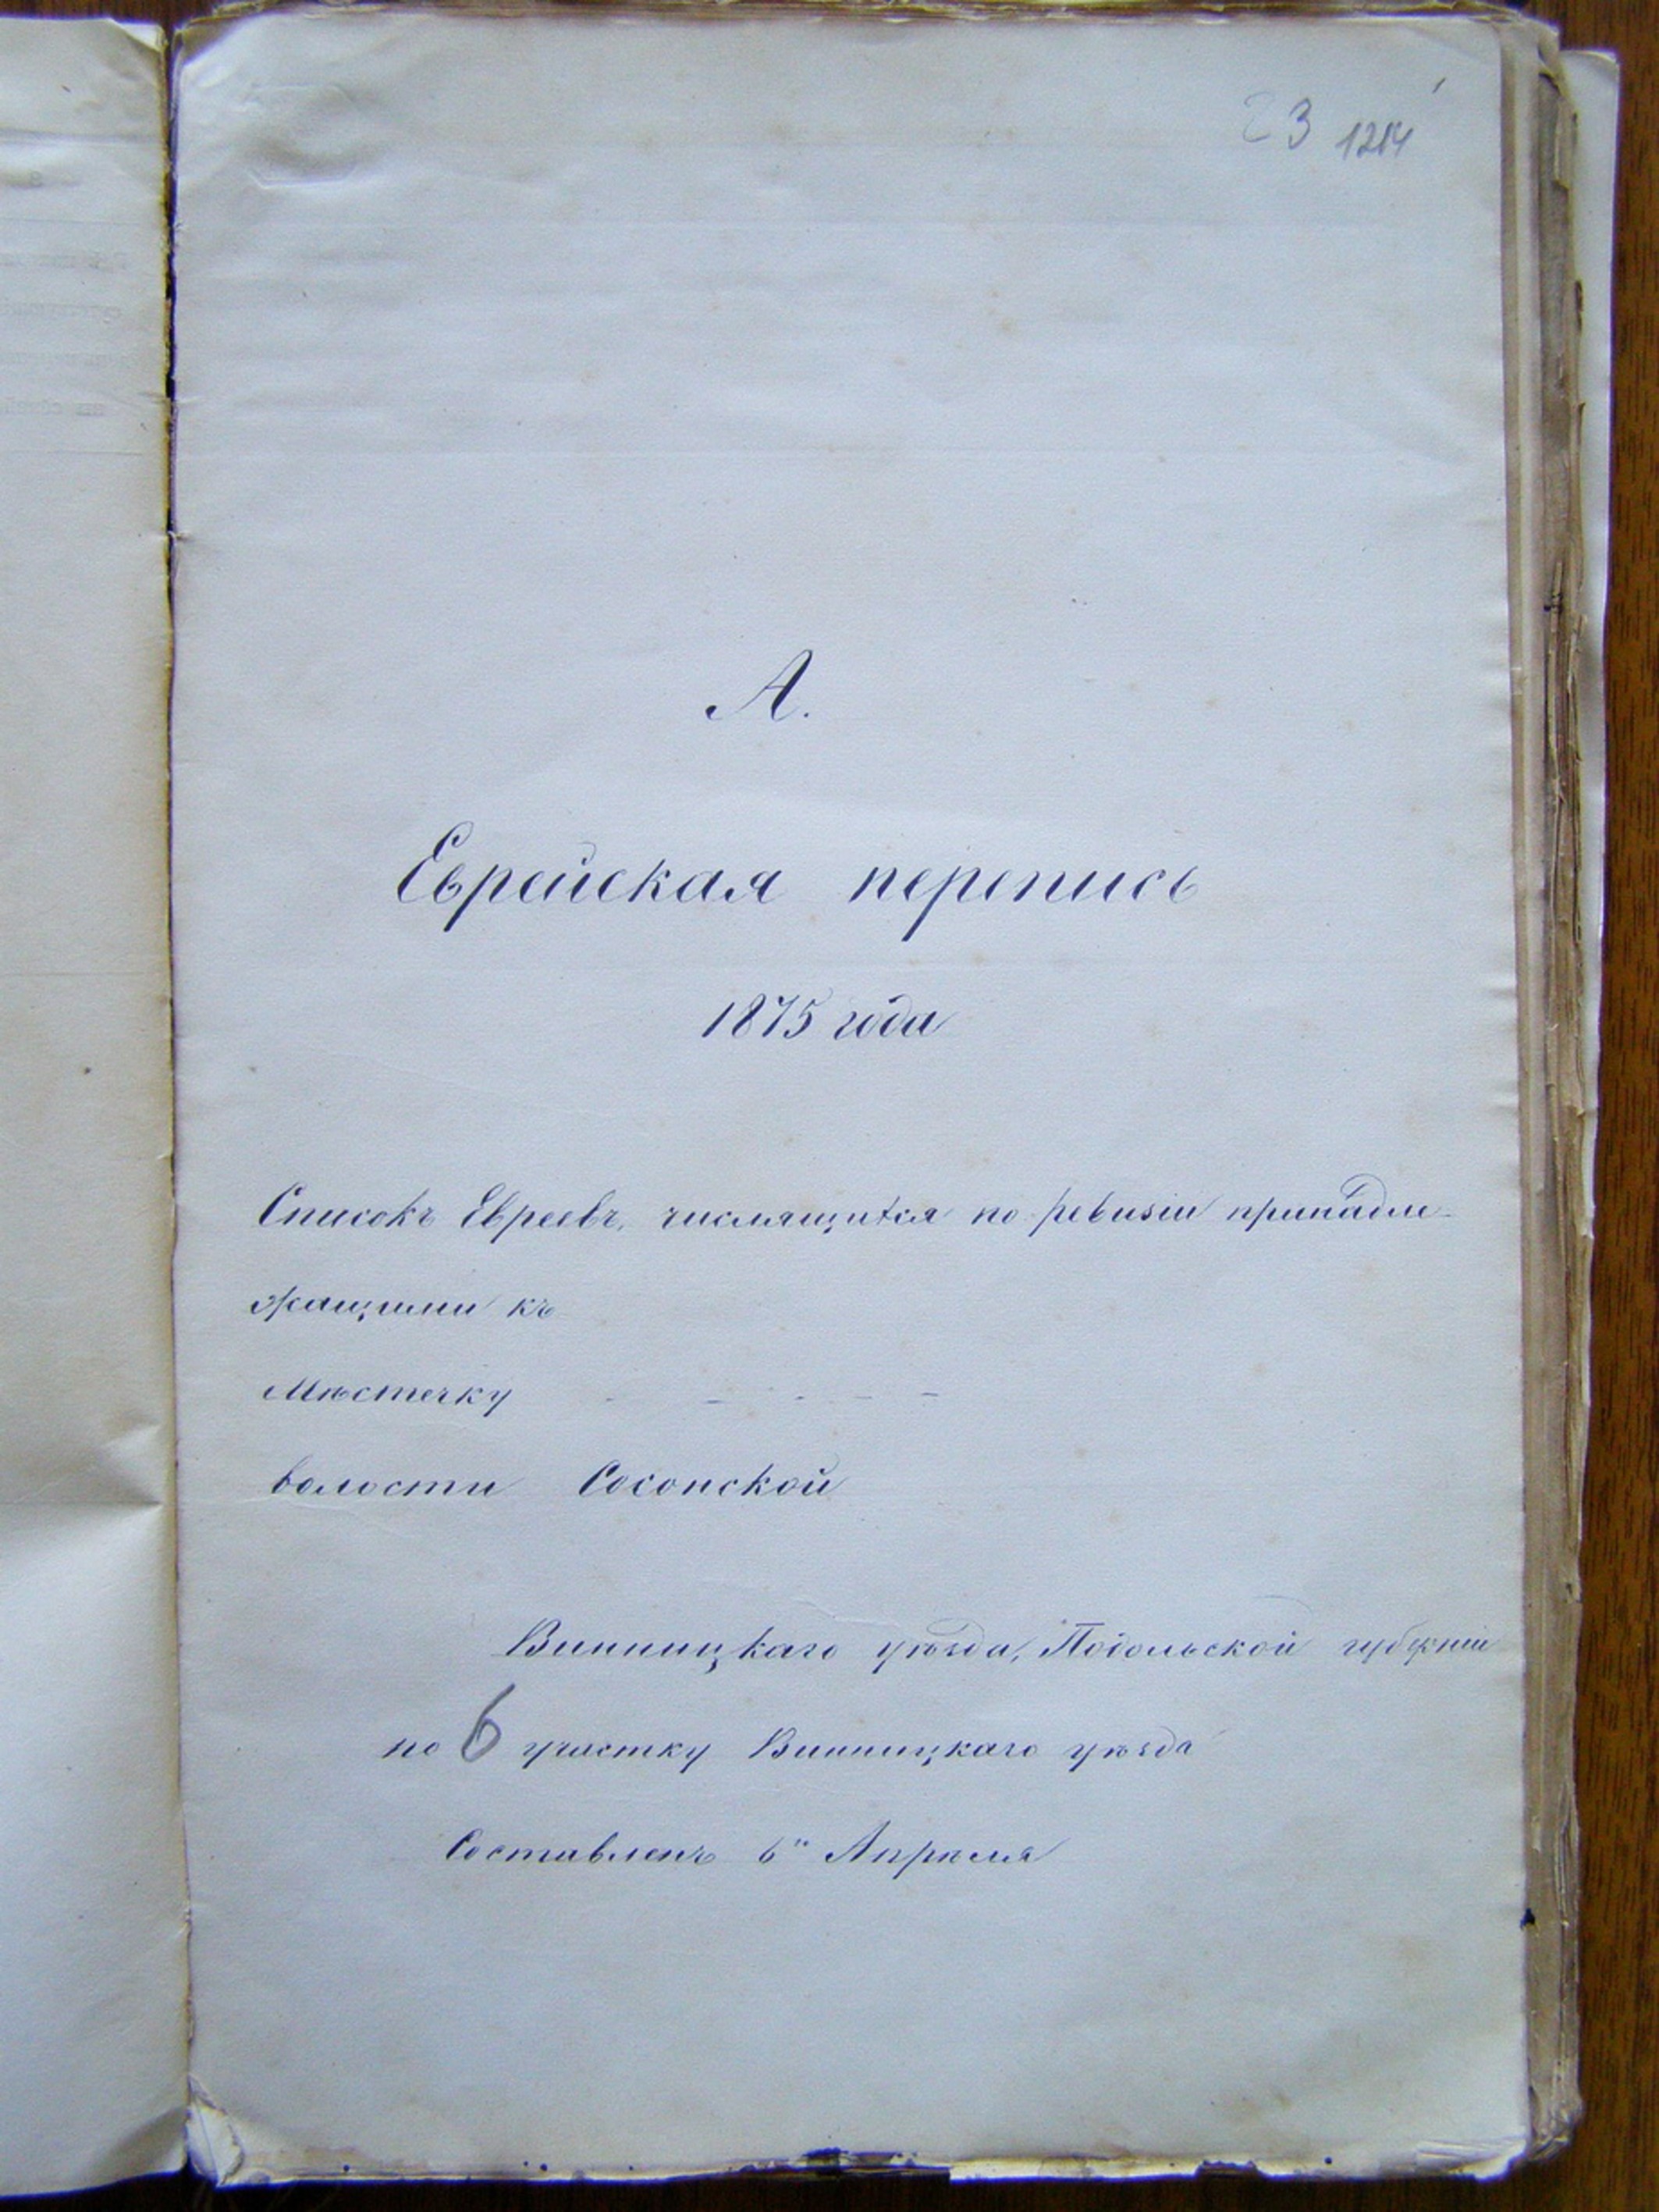 23 1214
А.
Еврейская перепись
1875 года
Списокъ Евреевъ, числящихся по ревизіи принадле-
жащими къ
Мѣстечку - - - - -
волости Сосонской
Винницкаго уѣзда, Подольской губерніи
по 6 участку Винницкаго уѣзда
Составленъ 6" Апрѣля